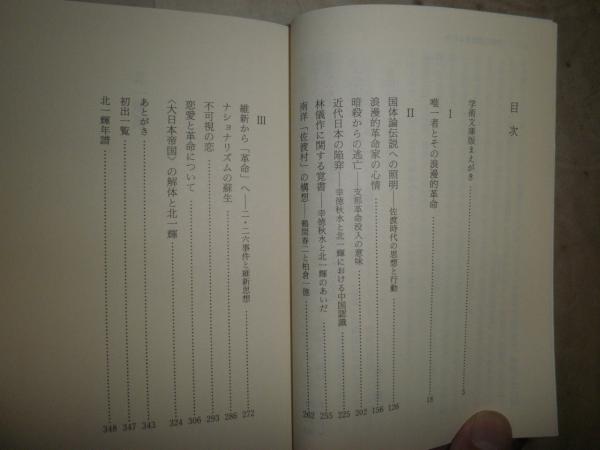 目次
学術文庫版まえがき……5
I
唯一者とその浪漫的革命……18
II
国体論伝説への照明——佐渡時代の思想と行動……126
浪漫的革命家の心情……156
暗殺からの逃亡——支那革命没入の意味……202
近代日本の陥穽——幸徳秋水と北一輝における中国認識……225
林儀作に関する覚書——幸徳秋水と北一輝のあいだ……255
南洋「佐渡村」の構想——鶴間春二と柏倉一徳……262
III
維新から「革命」へ——二・二六事件と維新思想……272
ナショナリズムの蘇生……286
不可視の恋……293
恋愛と革命について……306
〈大日本帝国〉の解体と北一輝……324
あとがき……343
初出一覧……347
北一輝年譜……348